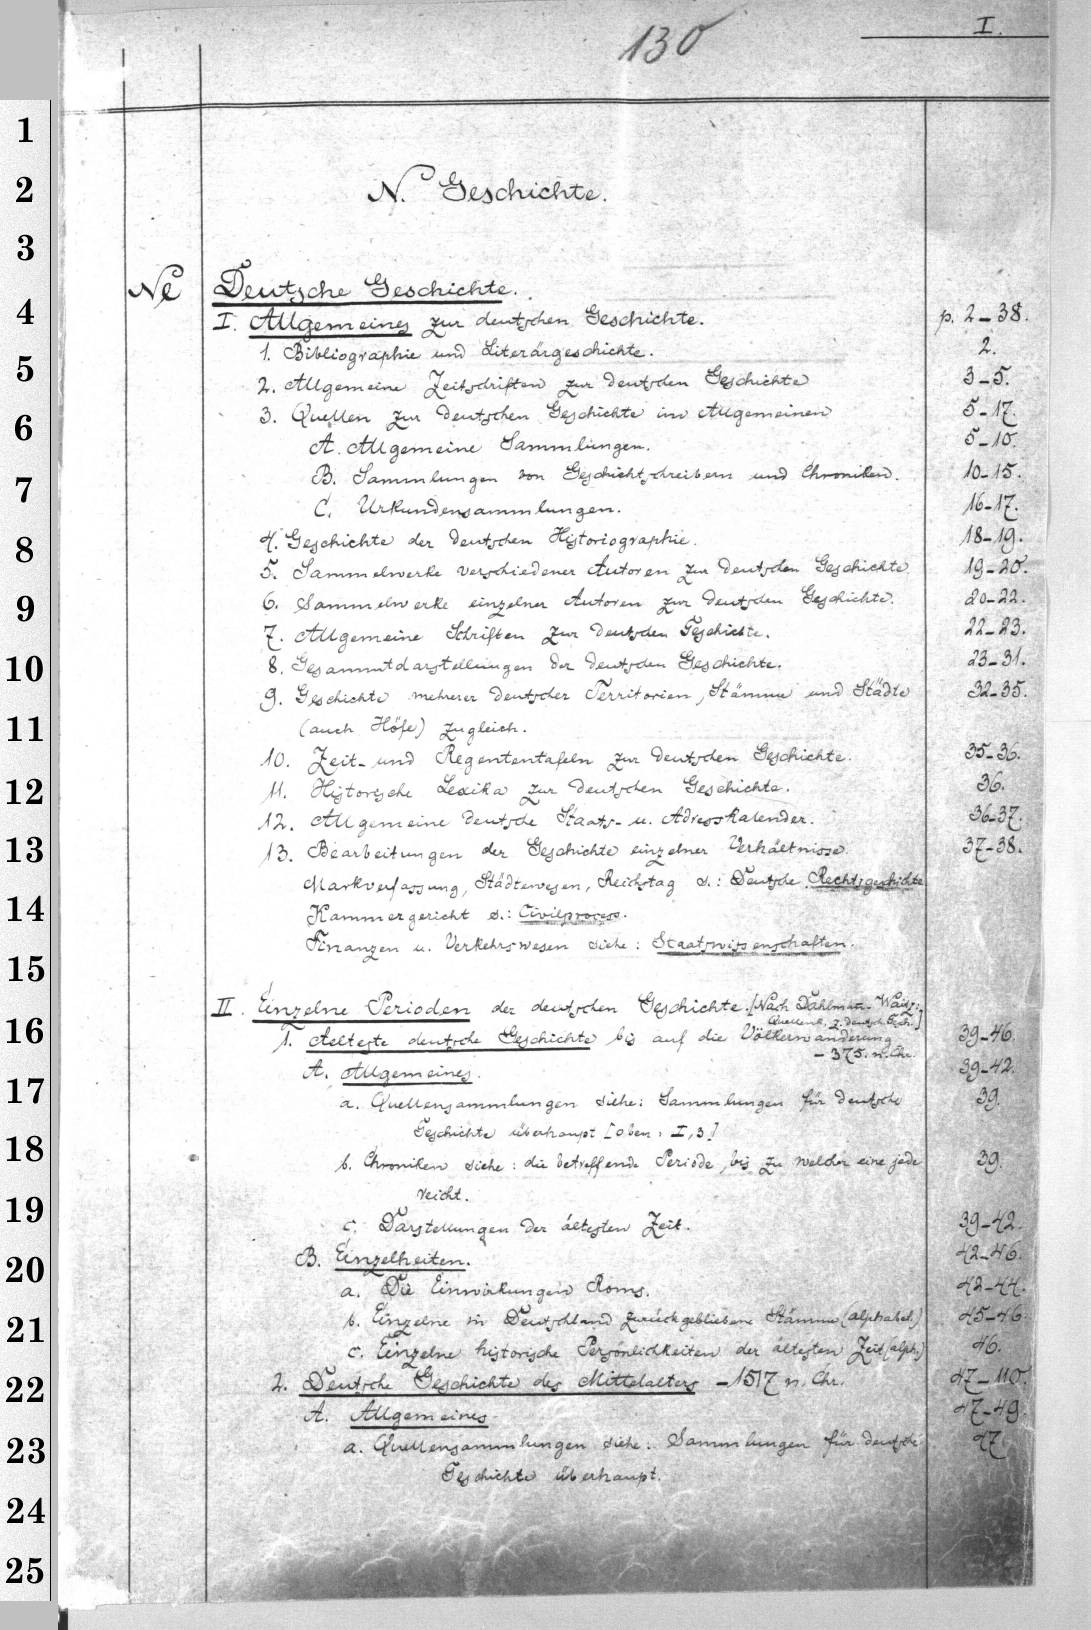 130
I.
1
2
3
4
5
6
7
8
9
10
11
12
13
14
15
16
17
18
19
20
21
22
23
24
25
N. Geschichte.
Ne Deutsche Geschichte.
I. Allgemeines zur deutschen Geschichte. p. 2-38.
1. Bibliographie und Literärgeschichte. 2.
2. Allgemeine Zeitschriften zur deutschen Geschichte 3-5.
3. Quellen zur deutschen Geschichte im Allgemeinen 5-17.
A. Allgemeine Sammlungen. 5-10.
B. Sammlungen von Geschichtschreibern und Chroniken. 10-15.
C. Urkundensammlungen. 16-17.
4. Geschichte der deutschen Historiographie. 18-19.
5. Sammelwerke verschiedener Autoren zur deutschen Geschichte. 19-20.
6. Sammelwerke einzelner Autoren zur deutschen Geschichte. 20-22.
7. Allgemeine Schriften zur deutschen Geschichte. 22-23.
8. Gesammtdarstellungen der deutschen Geschichte. 23-31.
9. Geschichte mehrerer deutscher Territorien, Stämme und Städte 32-35.
(auch Höfe) zugleich.
10. Zeit- und Regententafeln zur deutschen Geschichte. 35-36.
11. Historische Lexika zur deutschen Geschichte. 36.
12. Allgemeine deutsche Staats- u. Adresskalender. 36-37.
13. Bearbeitungen der Geschichte einzelner Verhältnisse. 37-38.
Markverfassung, Städtewesen, Reichstag s.: Deutsche Rechtsgeschichte
Kammergericht s.: Civilprocess.
Finanzen u. Verkehrswesen siehe: Staatswissenschaften.
II. Einzelne Perioden der deutschen Geschichte. [Nach Dahlmann-Waitz:
Quellenk. z. deutsch. Gesch.]
1. Aelteste deutsche Geschichte bis auf die Völkerwanderung 39-46.
- 375. n. Chr.
A. Allgemeines. 39-42.
a. Quellensammlungen siehe: Sammlungen für deutsche 39.
Geschichte überhaupt [oben: I,3]
b. Chroniken siehe: die betreffende Periode, bis zu welcher eine jede 39.
reicht.
c. Darstellungen der ältesten Zeit. 39-42.
B. Einzelheiten. 42-46.
a. Die Einwirkungen Roms. 42-44.
b. Einzelne in Deutschland zurückgebliebene Stämme (alphabet.) 45-46.
c. Einzelne historische Persönlichkeiten der ältesten Zeit (alph.) 46.
2. Deutsche Geschichte des Mittelalters -1517 n. Chr. 47-110.
A. Allgemeines. 47-49.
a. Quellensammlungen siehe: Sammlungen für deutsche 47.
Geschichte überhaupt.